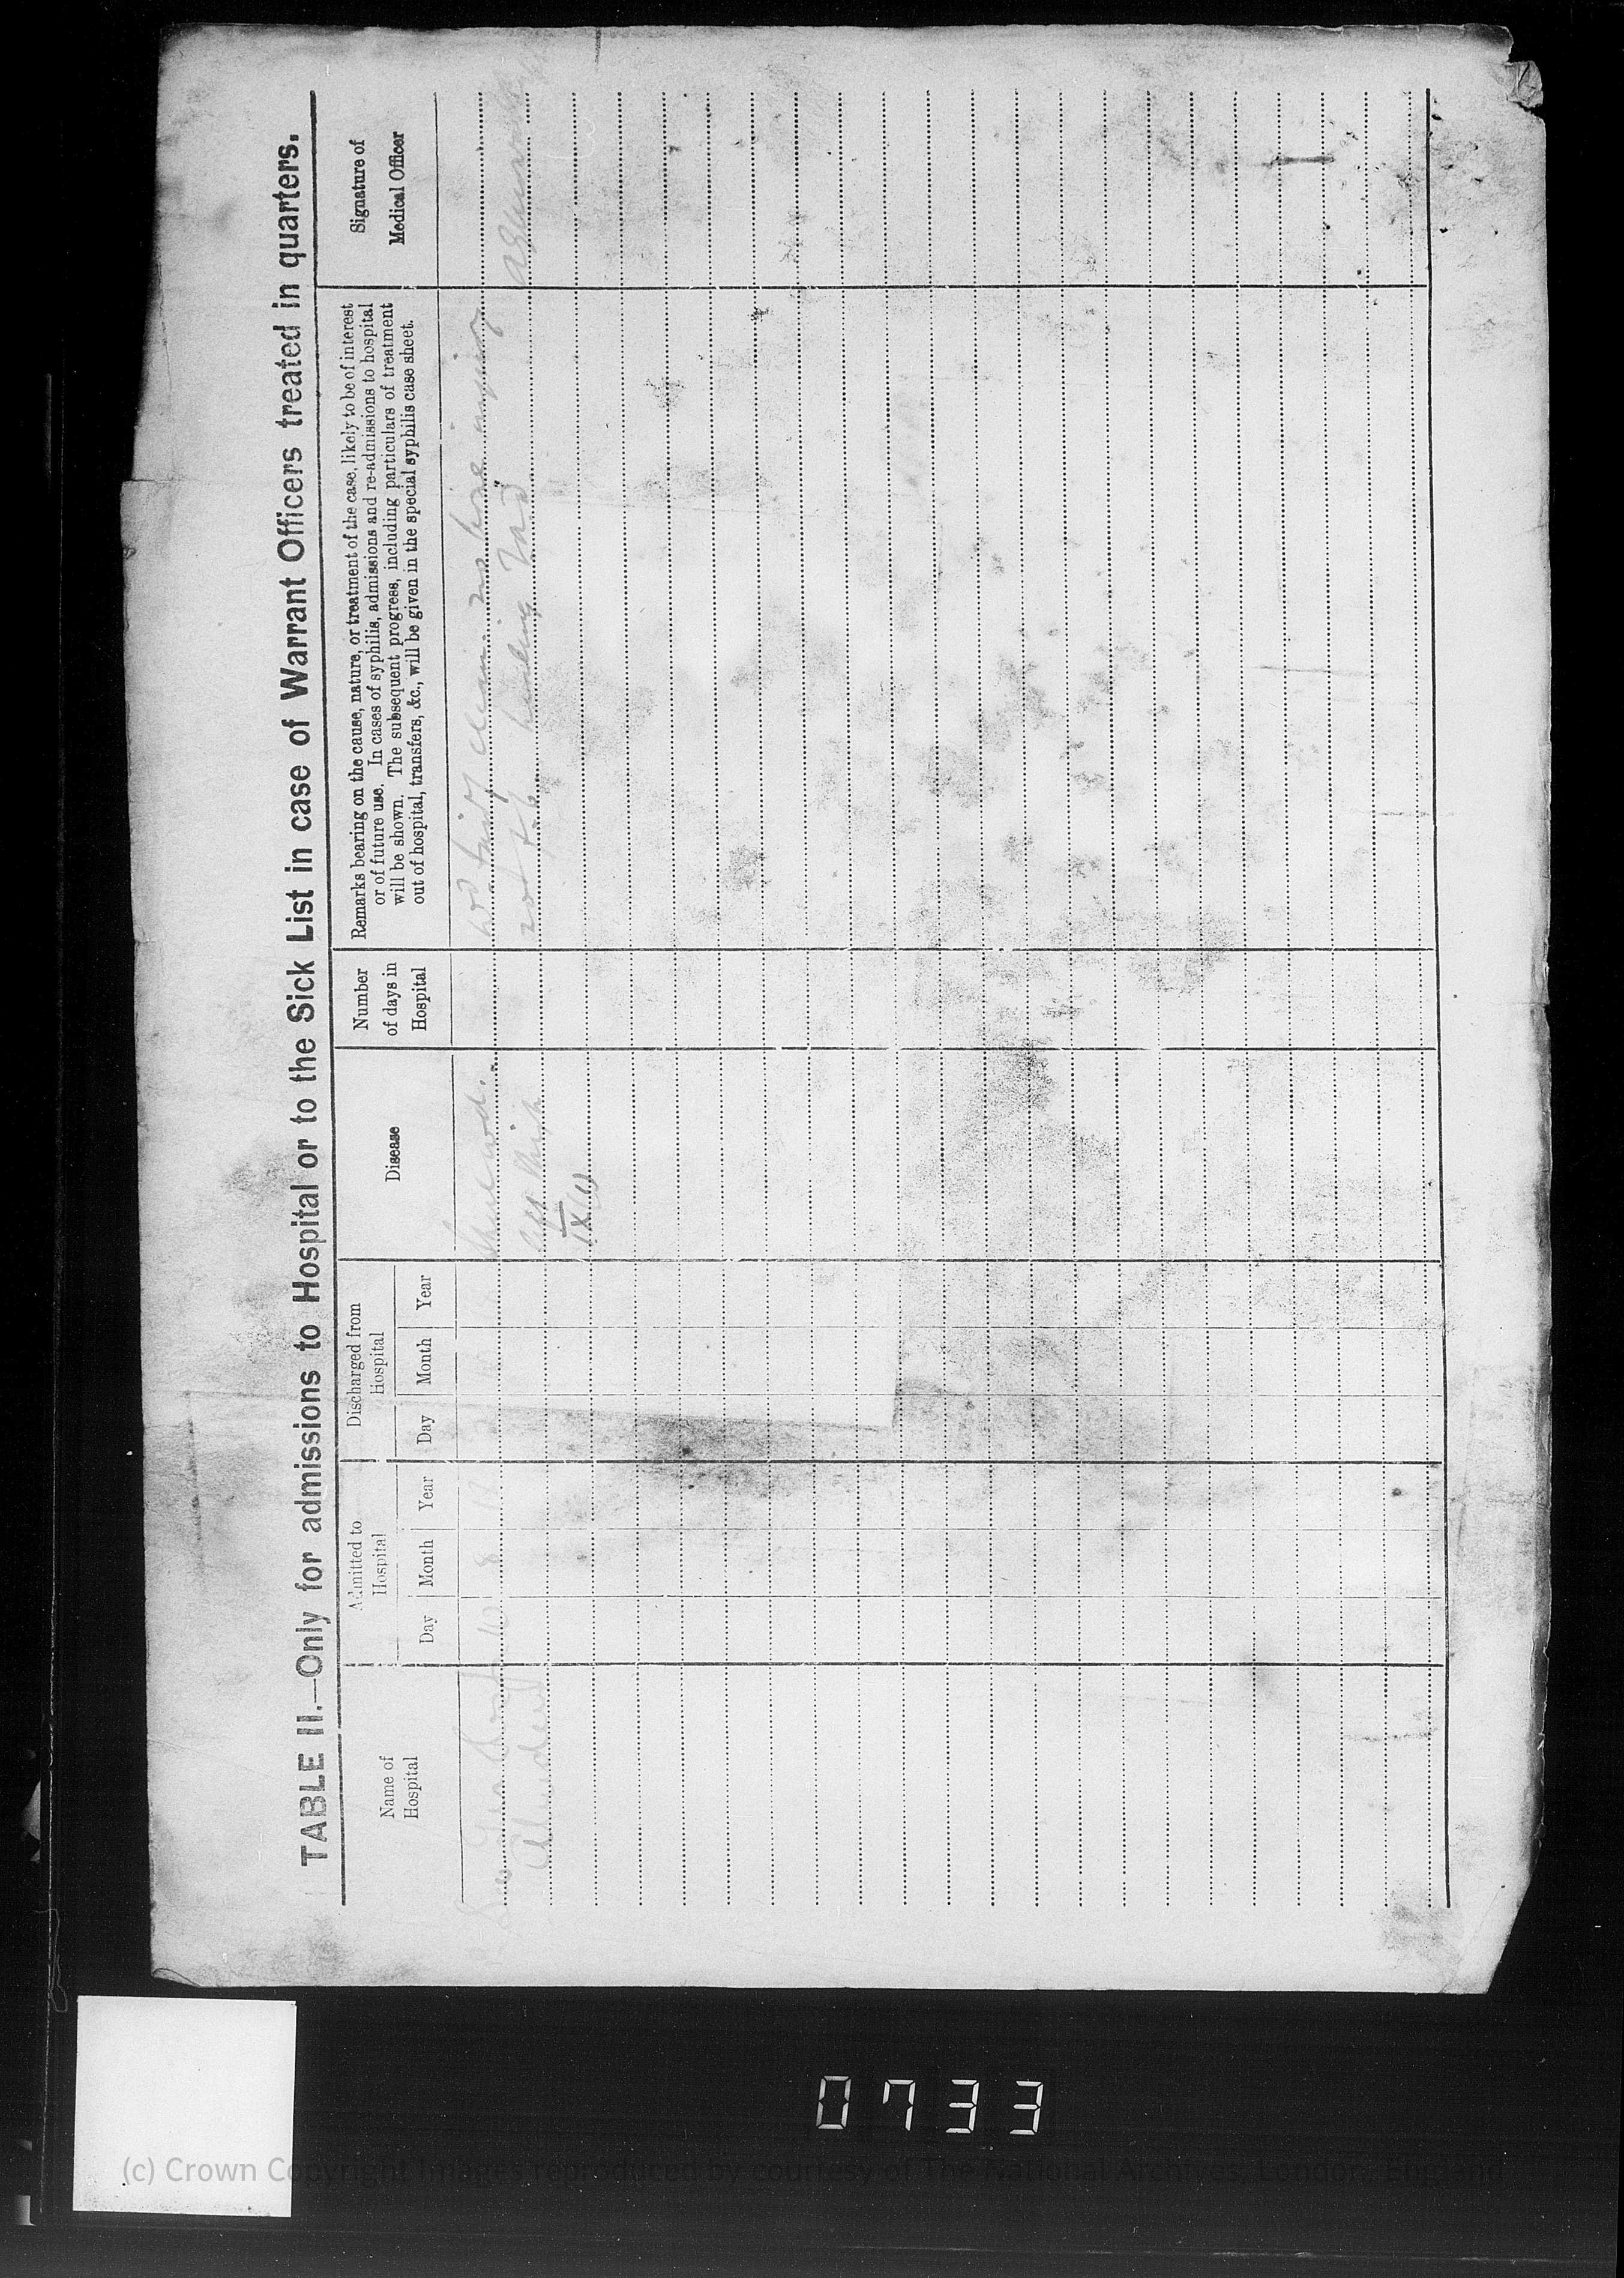 TABLE II.—Only for admissions to Hospital or to the Sick List in case of Warrant Officers treated in quarters.
Name of
Hospital
Admitted to
Hospital
Day Month Year
Discharged from
Hospital
Day Month Year
Disease
Number
of days in
Hospital
Remarks bearing on the cause, nature, or treatment of the case, likely to be of interest
or of future use. In cases of syphilis, admissions and re-admissions to hospital
will be shown. The subsequent progress, including particulars of treatment
out of hospital, transfers, &c., will be given in the special syphilis case sheet.
Signature of
Medical Officer
10 8
clean no bone
healing
IX (1)
0733
(c) Crown Copyright Images reproduced by courtesy of The National Archives, London, England